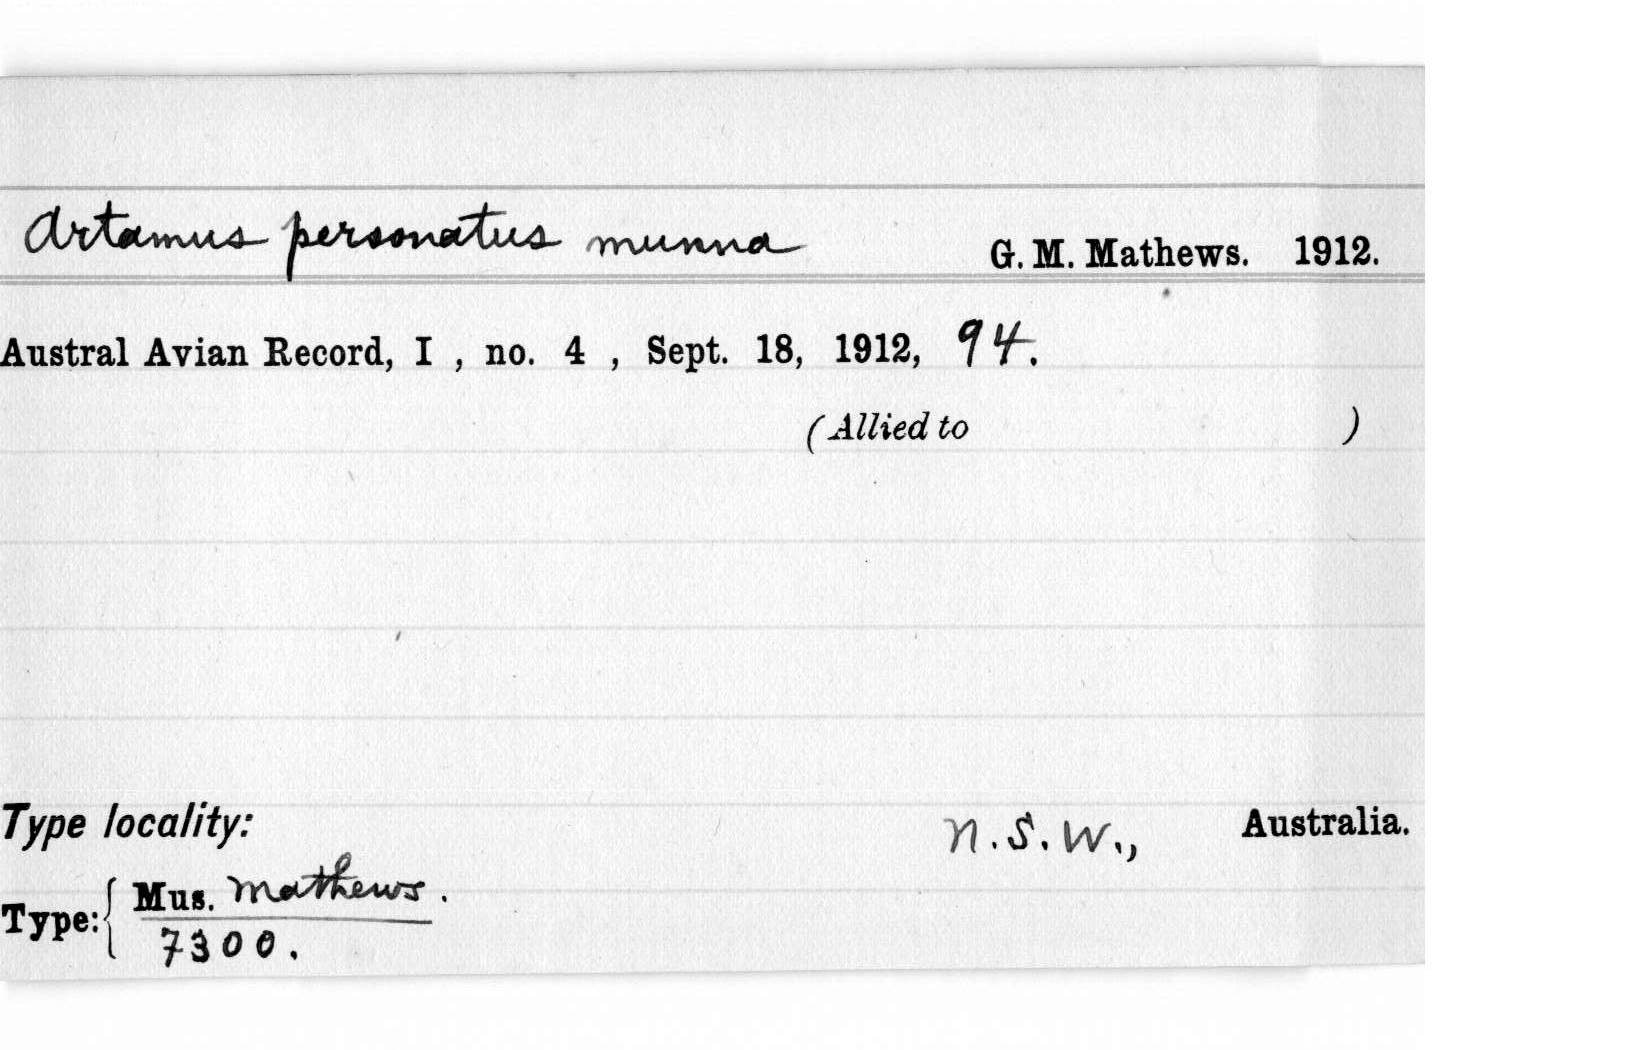 Artamus personatus munna G. M. Mathews. 1912.
Austral Avian Record, I , no. 4 , Sept. 18, 1912, 94.
(Allied to )
Type locality: N.S.W., Australia.
Type: { Mus. Mathews.
7300.